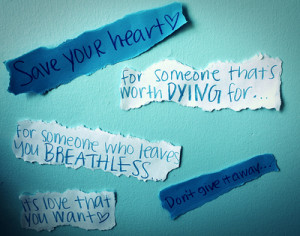 Save your heart♡
for someone thats
worth DYING for...
for someone who leaves
you BREATHLESS
Don't give it away...
its love that
you want♡